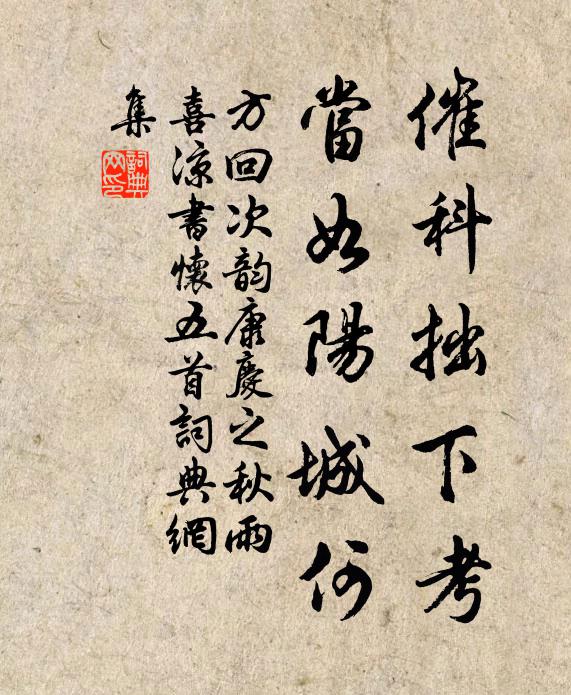 催科拙下考
當如陽城何
方回次韵康慶之秋雨
喜凉書懷五首詞典網
集
詞典
网印